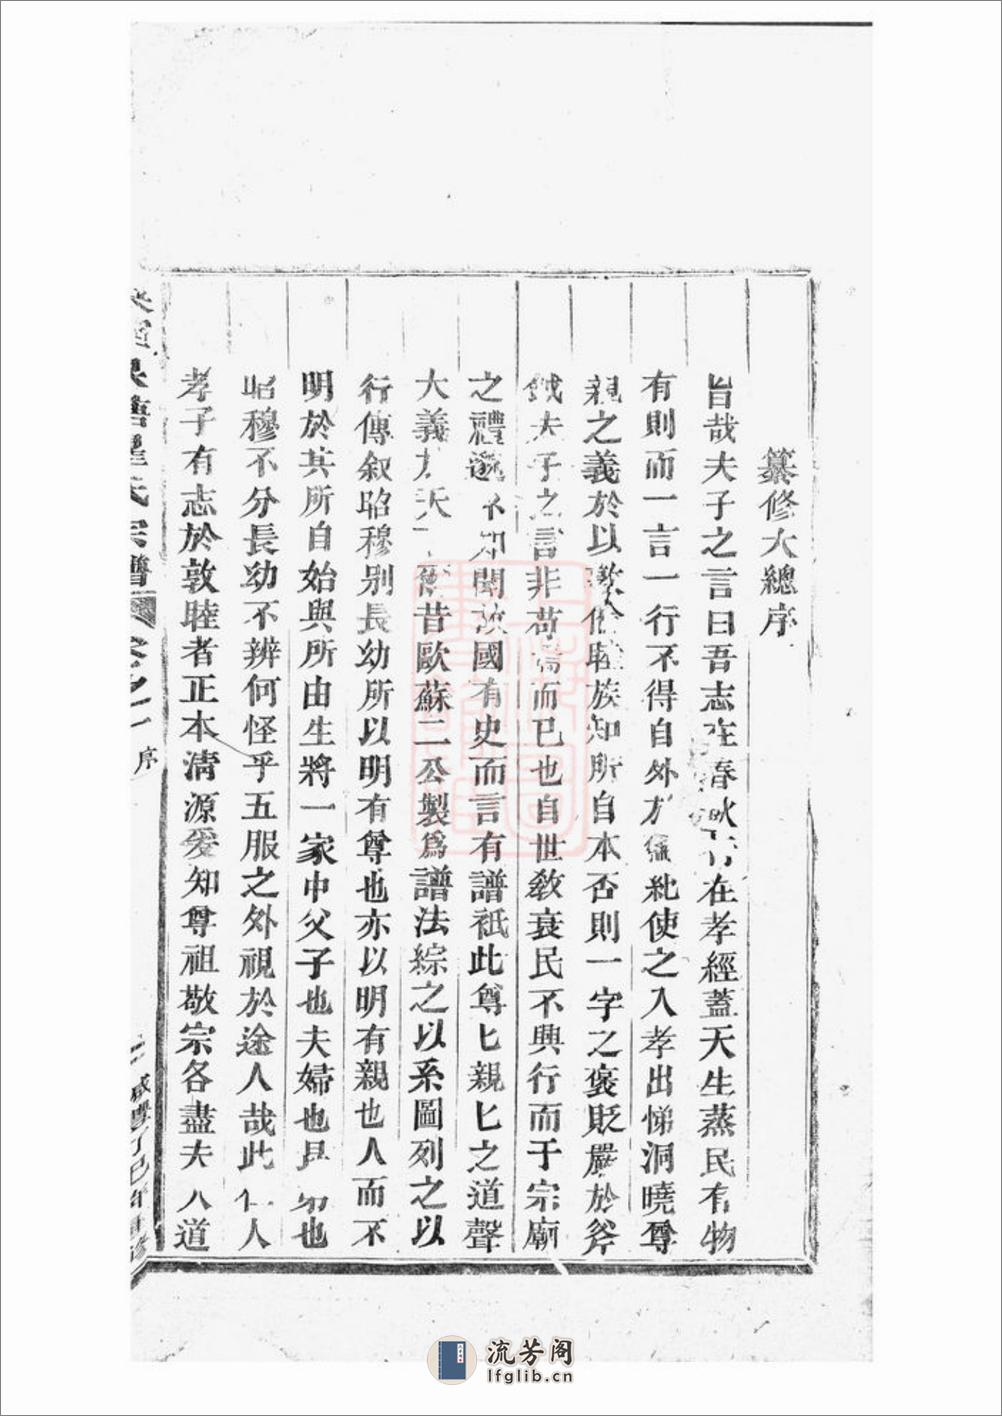 纂修大總序
旨哉夫子之言曰吾志在春秋行在孝經蓋天生蒸民有物
有則而一言一行不得自外方紕使之入孝出悌洞曉尊
親之義於以敦倫睦族知所自本否則一字之褒貶嚴於斧
鉞夫子之言非苟高而已也自世教衰民不興行而于宗廟
之禮邈不知聞故國有史而言有譜祇此尊匕親匕之道聲
大義天昔歐蘇二公製爲譜法綜之以系圖列之以
行傳叙昭穆别長幼所以明有尊也亦以明有親也人而不
明於其所自始與所由生將一家中父子也夫婦也昆弟也
昭穆不分長幼不辨何怪乎五服之外視於途人哉此仁人
孝子有志於敦睦者正本清源爰知尊祖敬宗各盡夫人道
氏宗譜 卷之一 序
咸豐丁巳
流芳阁
lfglib.cn